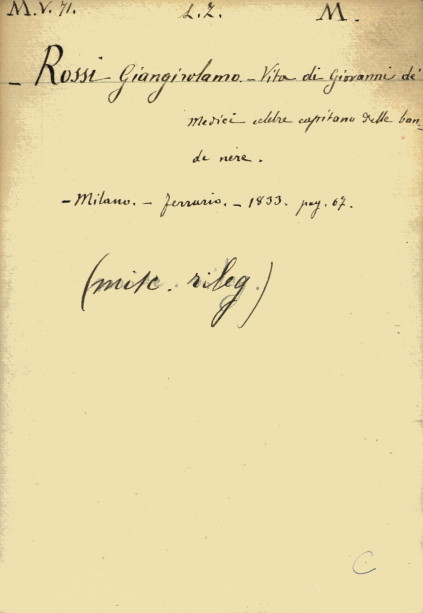 M.V. 71. L.Z. M.
- Rossi Giangirolamo. - Vita di Giovanni de'
Medici celebre capitano delle ban-
de nere.
- Milano. - Ferrario. - 1833. pag. 67.
(misc. rileg.)
C